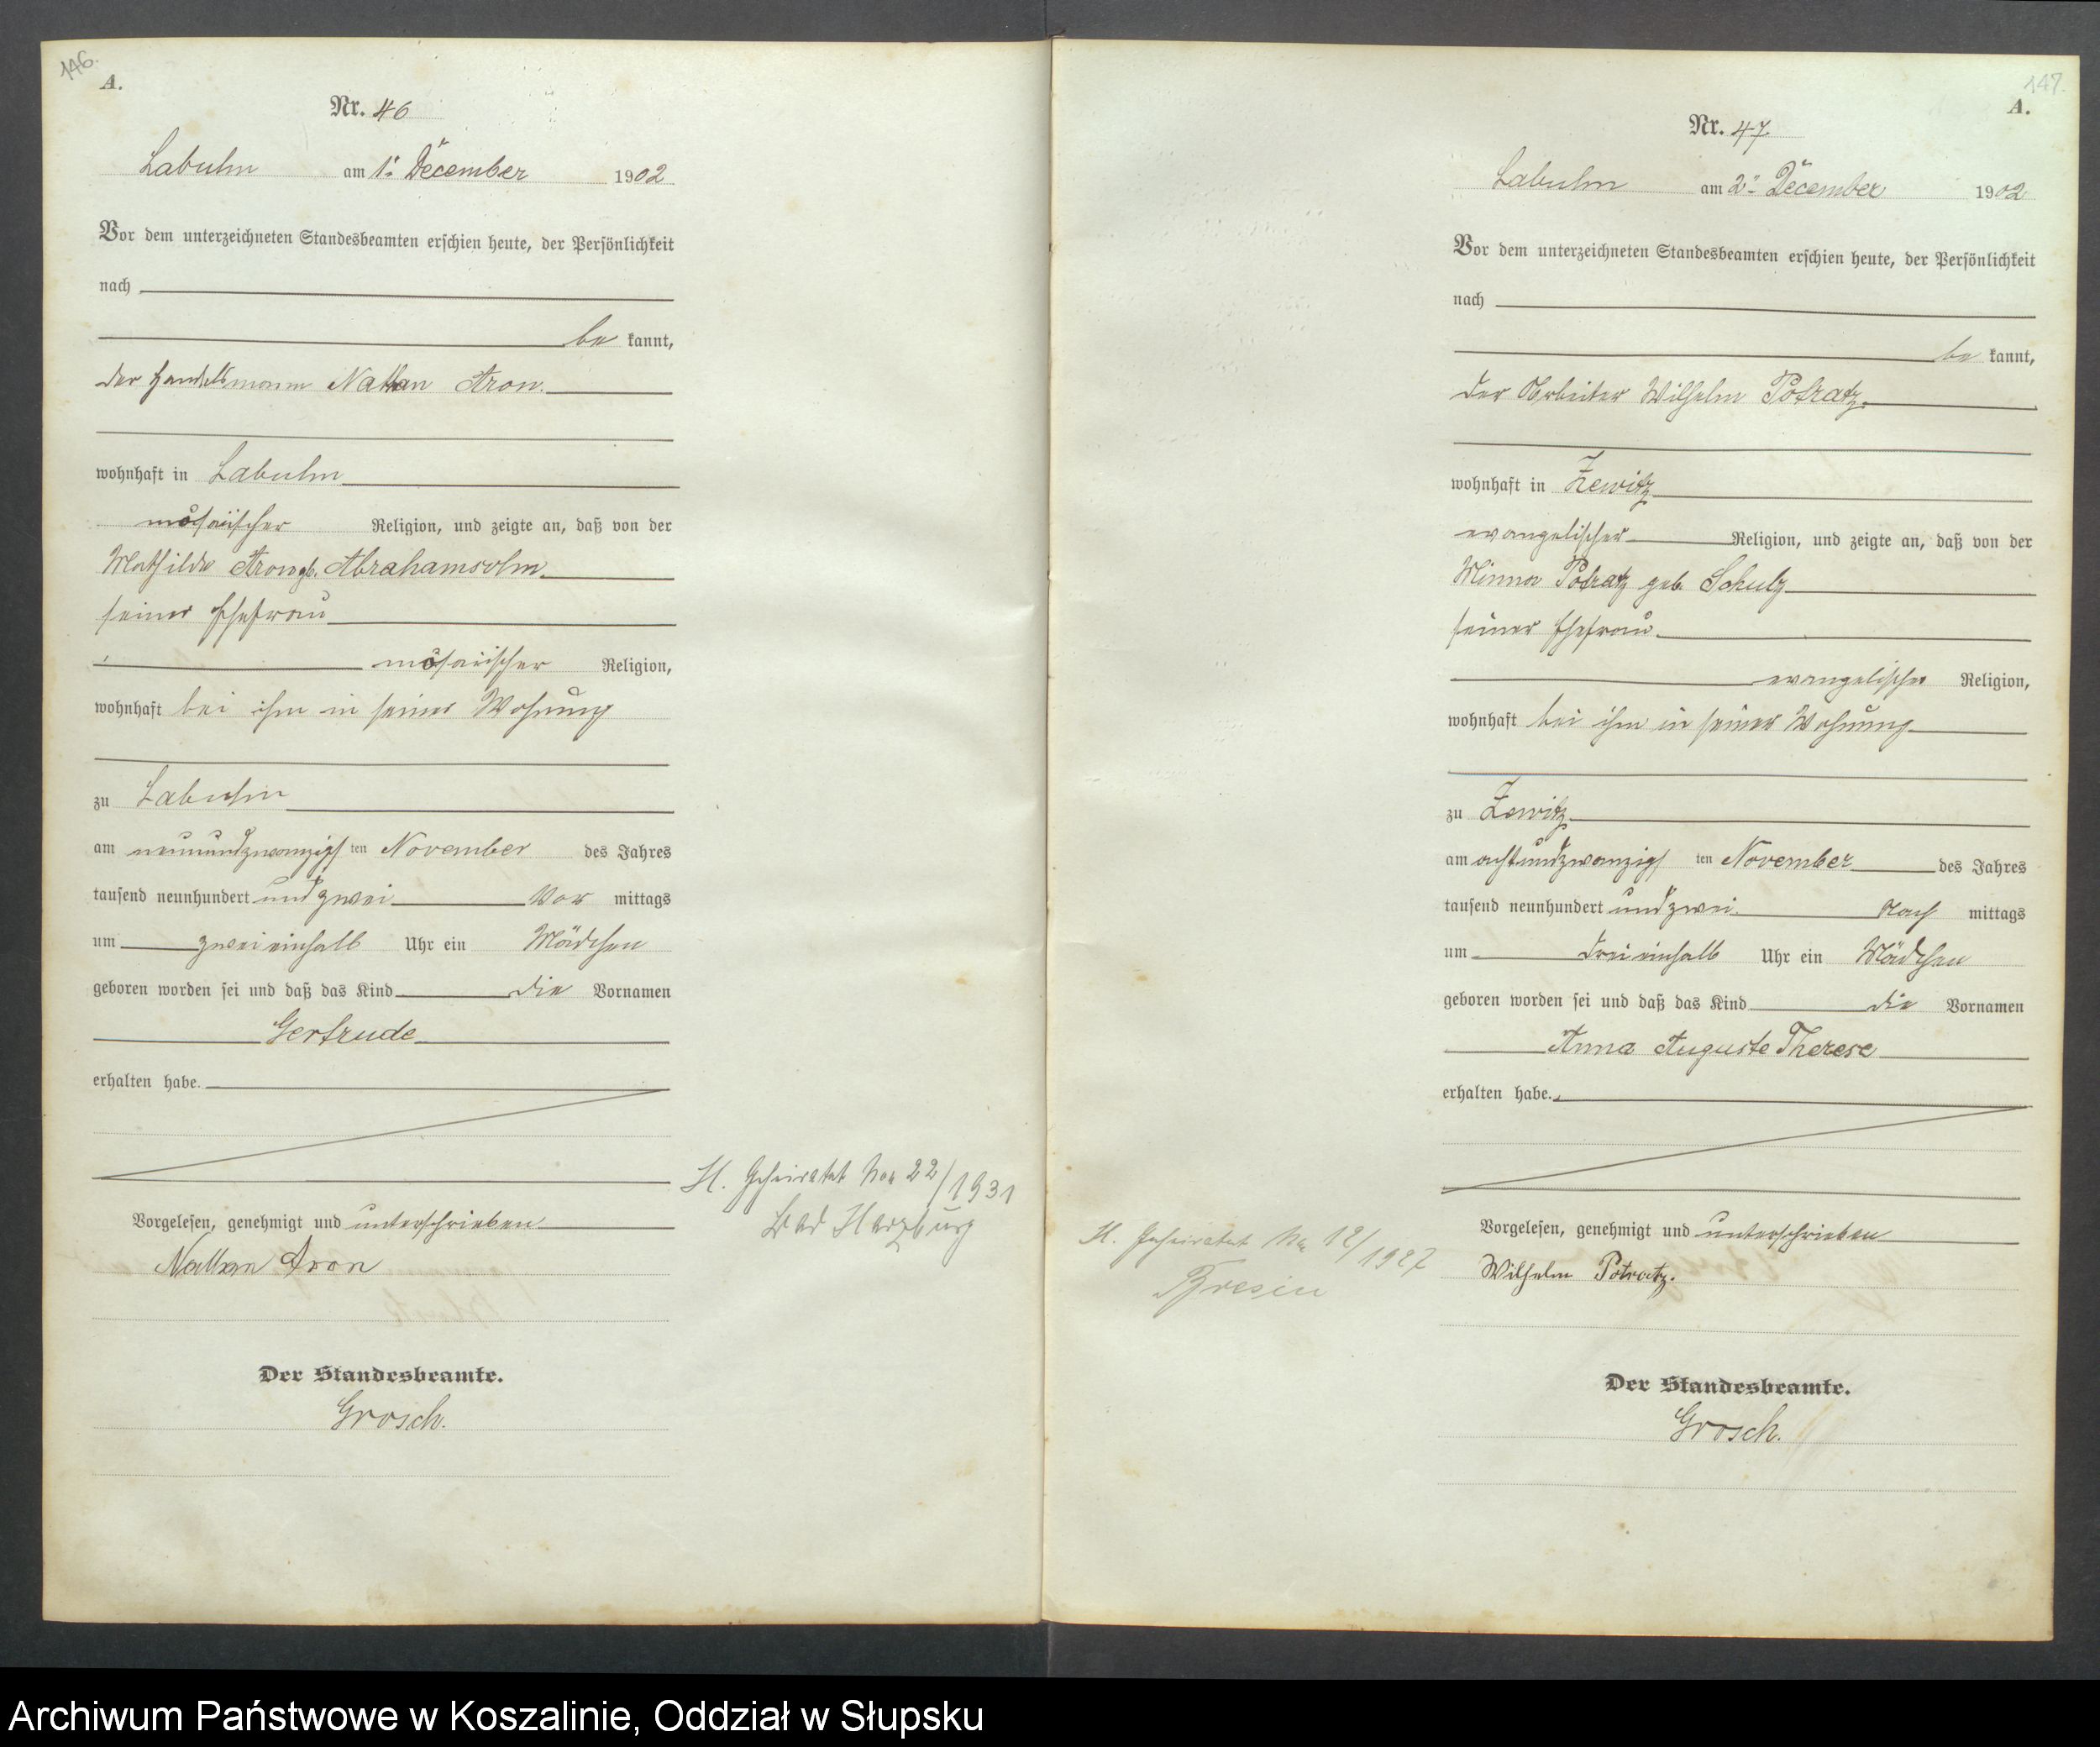 146.
A.
Nr. 46
Labuhn am 1. December 1902
Vor dem unterzeichneten Standesbeamten erschien heute, der Persönlichkeit
nach
be kannt,
der Handelsmann Nathan Aron.
wohnhaft in Labuhn
mosaischer Religion, und zeigte an, daß von der
Mathilde Aron gb. Abrahamsohn
seiner Ehefrau
mosaischer Religion,
wohnhaft bei ihm in seiner Wohnung
zu Labuhn
am neunundzwanzigsten November des Jahres
tausend neunhundert und zwei Vor mittags
um zweieinhalb Uhr ein Mädchen
geboren worden sei und daß das Kind die Vornamen
Gertrude
erhalten habe.
Vorgelesen, genehmigt und unterschrieben
Nathan Aron
Der Standesbeamte.
Grosch.
H. Geheiratet No 22/1931
Bad Harzburg
147.
A.
Nr. 47.
Labuhn am 2. December 1902
Vor dem unterzeichneten Standesbeamten erschien heute, der Persönlichkeit
nach
be kannt,
der Arbeiter Wilhelm Potratz.
wohnhaft in Zewitz
evangelischer Religion, und zeigte an, daß von der
Minna Potratz geb. Schulz
seiner Ehefrau.
evangelischer Religion,
wohnhaft bei ihm in seiner Wohnung
zu Zewitz
am achtundzwanzigsten November des Jahres
tausend neunhundert und zwei Nach mittags
um dreieinhalb Uhr ein Mädchen
geboren worden sei und daß das Kind die Vornamen
Anna Auguste Therese
erhalten habe.
Vorgelesen, genehmigt und unterschrieben
Wilhelm Potratz.
Der Standesbeamte.
Grosch.
H. Geheiratet No 12/1927
Bresin
Archiwum Państwowe w Koszalinie, Oddział w Słupsku